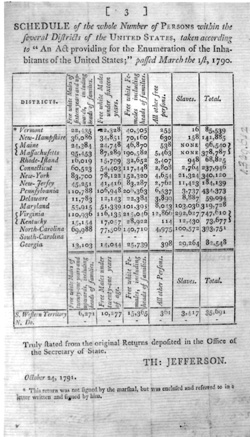 [ 3 ]
SCHEDULE of the whole Number of PERSONS within the
several Districts of the UNITED STATES, taken according
to "An Act providing for the Enumeration of the Inha-
bitants of the United States;" passed March the 1st, 1790.
DISTRICTS. Free white Males of sixteen years and upwards, including heads of families. Free white Males under sixteen years. Free white Females, including heads of families. All other free persons. Slaves. Total.
* Vermont 22,435 22,328 40,505 255 16 85,539
New-Hampshire 36,086 34,851 70,160 630 158 141,885
Maine 24,384 24,748 46,870 538 NONE 96,540
Massachusetts 95,453 87,289 190,582 5,463 NONE 378,787
Rhode-Island 16,019 15,799 32,652 3,407 948 68,825
Connecticut 60,523 54,403 117,448 2,808 2,764 237,946
New-York 83,700 78,122 152,320 4,654 21,324 340,120
New-Jersey 45,251 41,416 83,287 2,762 11,423 184,139
Pennsylvania 110,788 106,948 206,363 6,537 3,737 434,373
Delaware 11,783 12,143 22,384 3,899 8,887 59,094
Maryland 55,915 51,339 101,395 8,043 103,036 319,728
Virginia 110,936 116,135 215,046 12,866 292,627 747,610
Kentucky 15,154 17,057 28,922 114 12,430 73,677
North-Carolina 69,988 77,506 140,710 4,975 100,572 393,751
South-Carolina
Georgia 13,103 14,044 25,739 398 29,264 82,548
Free white Males of twenty-one years and upwards, including heads of families. Free Males under twenty-one years of age. Free white Females, including heads of families. All other Persons. Slaves. Total.
S. Western Territory 6,271 10,277 15,365 361 3,417 35,691
N. Do.
Truly stated from the original Returns deposited in the Office of
the Secretary of State.
TH: JEFFERSON.
October 24, 1791.
* This return was not signed by the marshal, but was enclosed and referred to in a
letter written and signed by him.